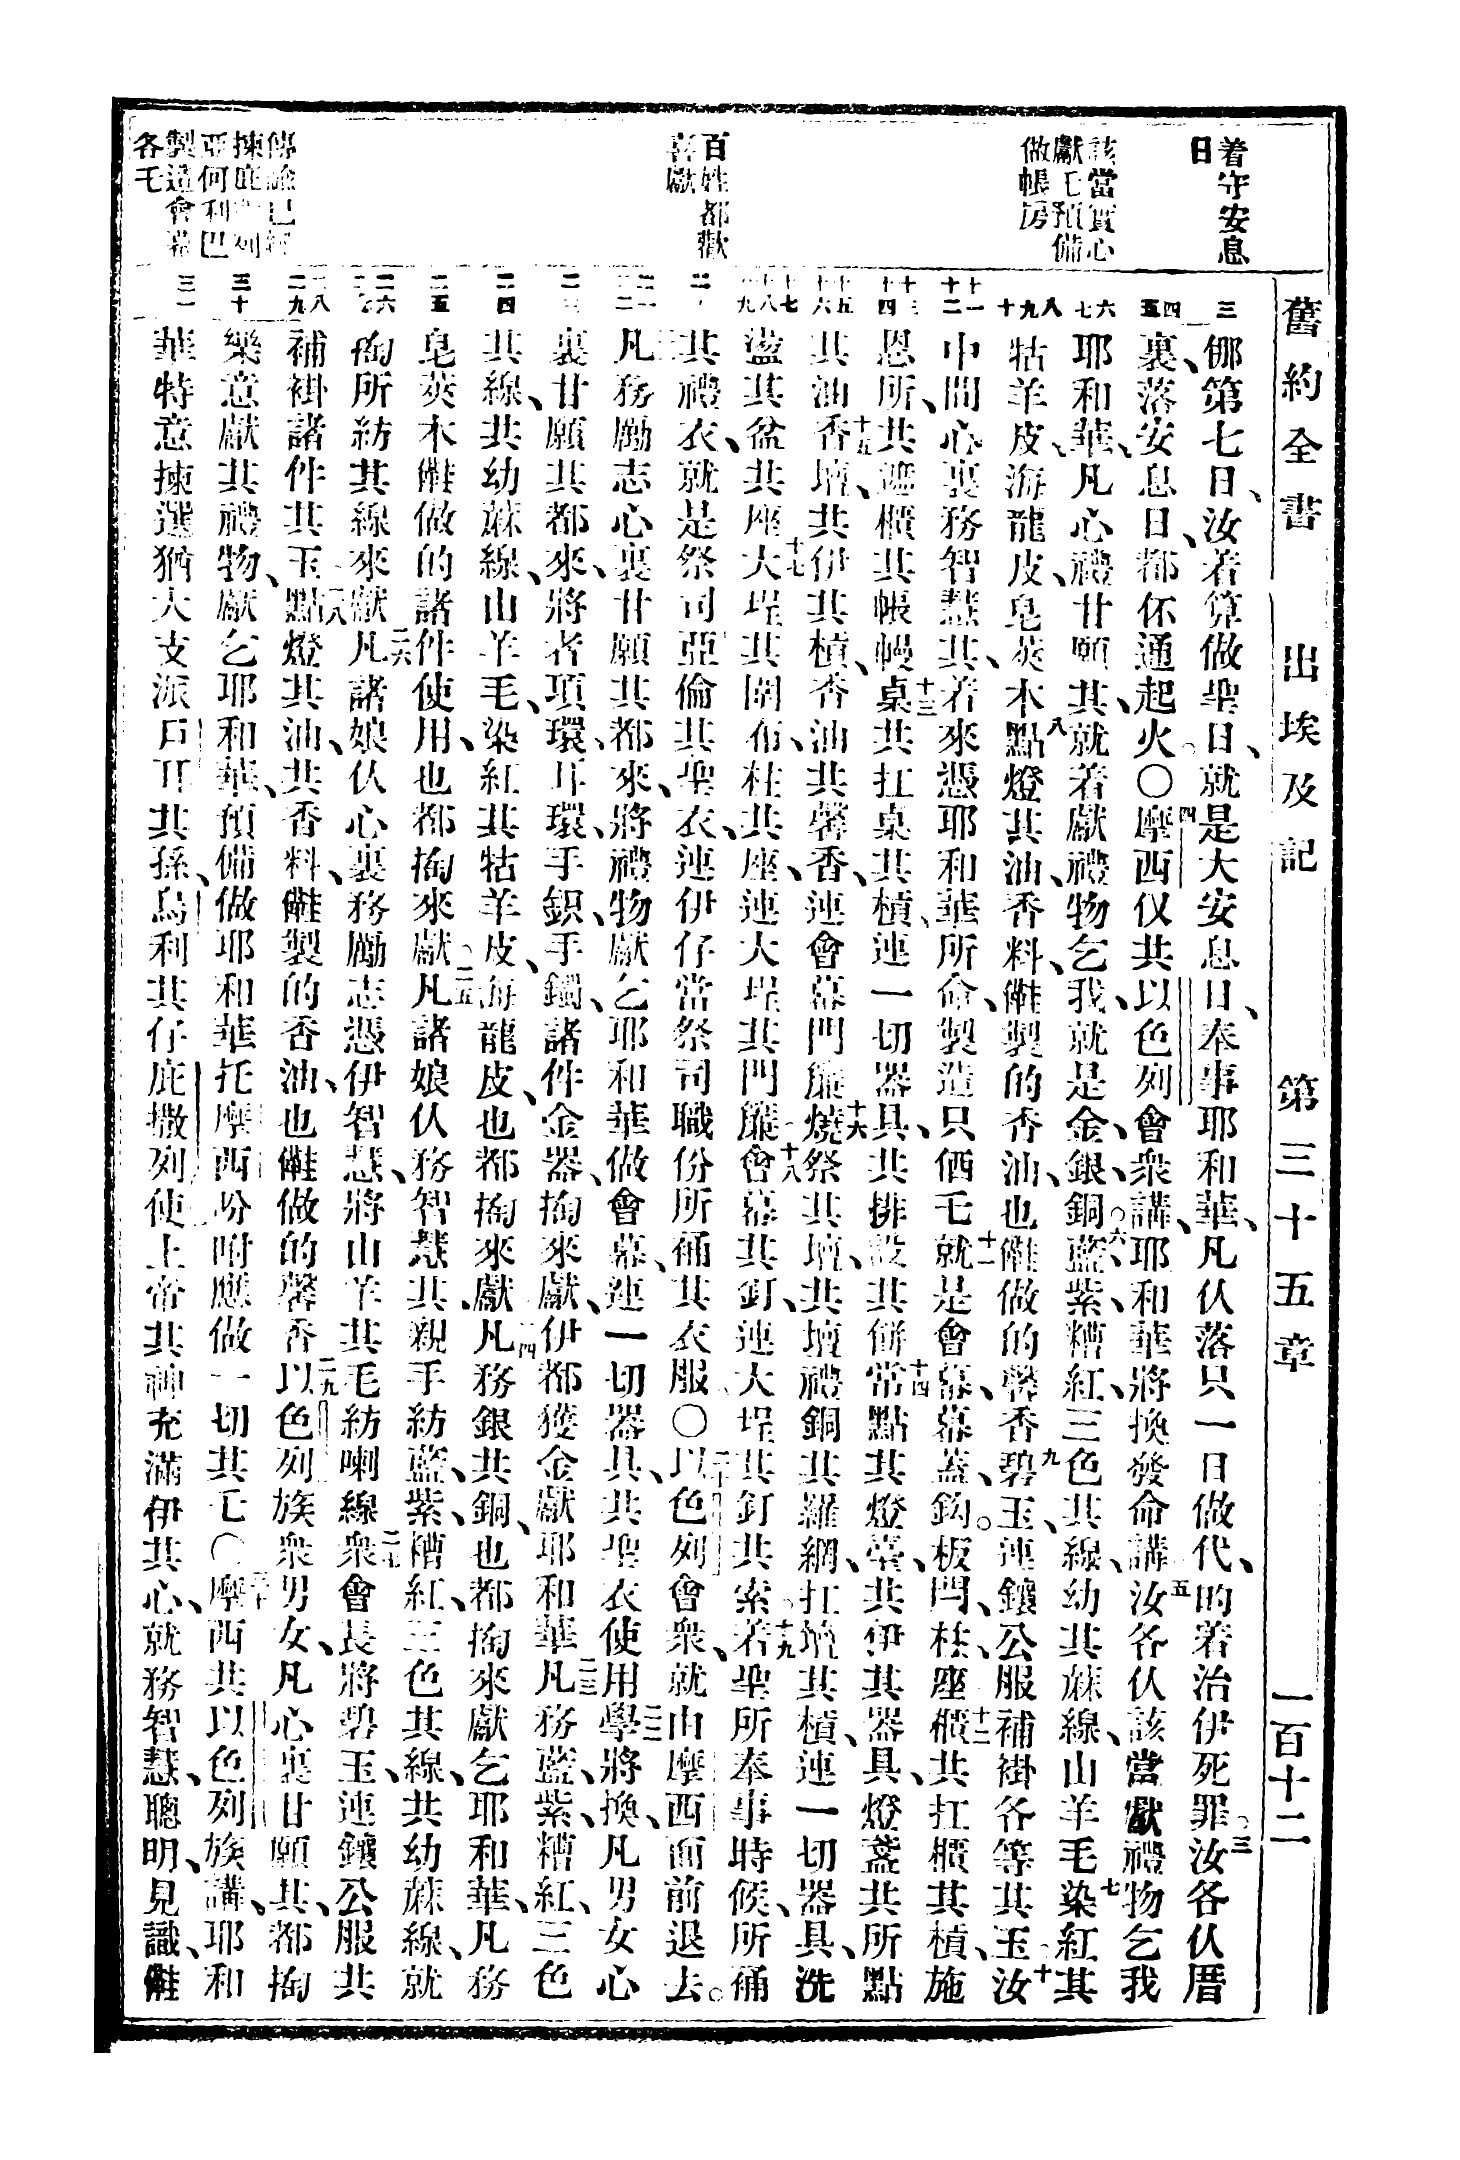 舊約全書 出埃及記 第三十五章 一百十二
着守安息
日
該當實心
獻乇預備
做帳房
百姓都歡
喜獻
製造會幕
各乇
三
四
五
六
七
八
九
十
十一
十二
十三
十四
十五
十六
十七
十八
十九
二四
二五
二六
二八
二九
三十
三一
㑚第七日、汝着算做聖日、就是大安息日、奉事耶和華、凡仈落只一日做代、的着治伊死罪。三汝各仈厝
裏、落安息日、都伓通起火。〇四摩西仅共以色列會衆講、耶和華將換發命講五汝各仈該當獻禮物乞我
耶和華、凡心禮甘願其、就着獻禮物乞我、就是金、銀、銅、六藍、紫、糟紅、三色其線、幼其蔴線、山羊毛、七染紅其
牯羊皮、海龍皮、皂莢木、八點燈其油、香料、㑹製的香油、也㑹做的馨香、九碧玉、連鑲公服補褂各等其玉。十汝
中間心裏務智慧其、着來憑耶和華所命、製造只価乇、十一就是會幕、幕蓋、鈎、板、閂、柱、座、十二櫃共扛櫃其槓、施
恩所、共遮櫃其帳幔、十三桌共扛桌其槓、連一切器具、共排設其餅、十四常點其燈臺、共伊其器具、燈盞共所點
其油、十五香壇、共伊其槓、香油共馨香、連會幕門簾、十六燒祭其壇、共壇禮銅其羅網、扛壇其槓、連一切器具、洗
盪其盆共座、十七大埕其闈布、柱共座、連大埕其門簾、十八會幕其釘、連大埕其釘共索、十九着聖所奉事時候、所䘄
其禮衣、就是祭司亞倫其聖衣、連伊仔當祭司職份所䘄其衣服。〇二十以色列會衆、就由摩西面前退去。
凡務勵志心裏甘願其都來、將禮物獻乞耶和華、做會幕、連一切器具、共聖衣使用、二二學將換、凡男女心
裏甘願其都來、將者項環、耳環、手鈬、手鐲、諸件金器掏來獻、伊都獲金獻耶和華、二三凡務藍、紫、糟紅、三色
其線、共幼蔴線、山羊毛、染紅其牯羊皮、海龍皮、也都掏來獻、二四凡務銀共銅、也都掏來獻乞耶和華、凡務
皂莢木㑹做的諸件使用、也都掏來獻。二五凡諸娘仈務智慧其、親手紡藍、紫、糟紅、三色其線、共幼蔴線、就
掏所紡其線來獻、二六凡諸娘仈心裏務勵志憑伊智慧、將山羊其毛紡喇線、二七衆會長將碧玉、連鑲公服共
補褂諸件其玉、二八點燈其油、共香料、㑹製的香油、也㑹做的馨香、二九以色列族衆男女、凡心裏甘願其、都掏
樂意獻其禮物、獻乞耶和華、預備做耶和華托摩西吩咐應做一切其乇。〇三十摩西共以色列族講、耶和
華特意揀選猶大支派戶珥其孫、烏利其仔庇撒列、使上帝其神充滿伊其心、就務智慧、聰明、見識、㑹